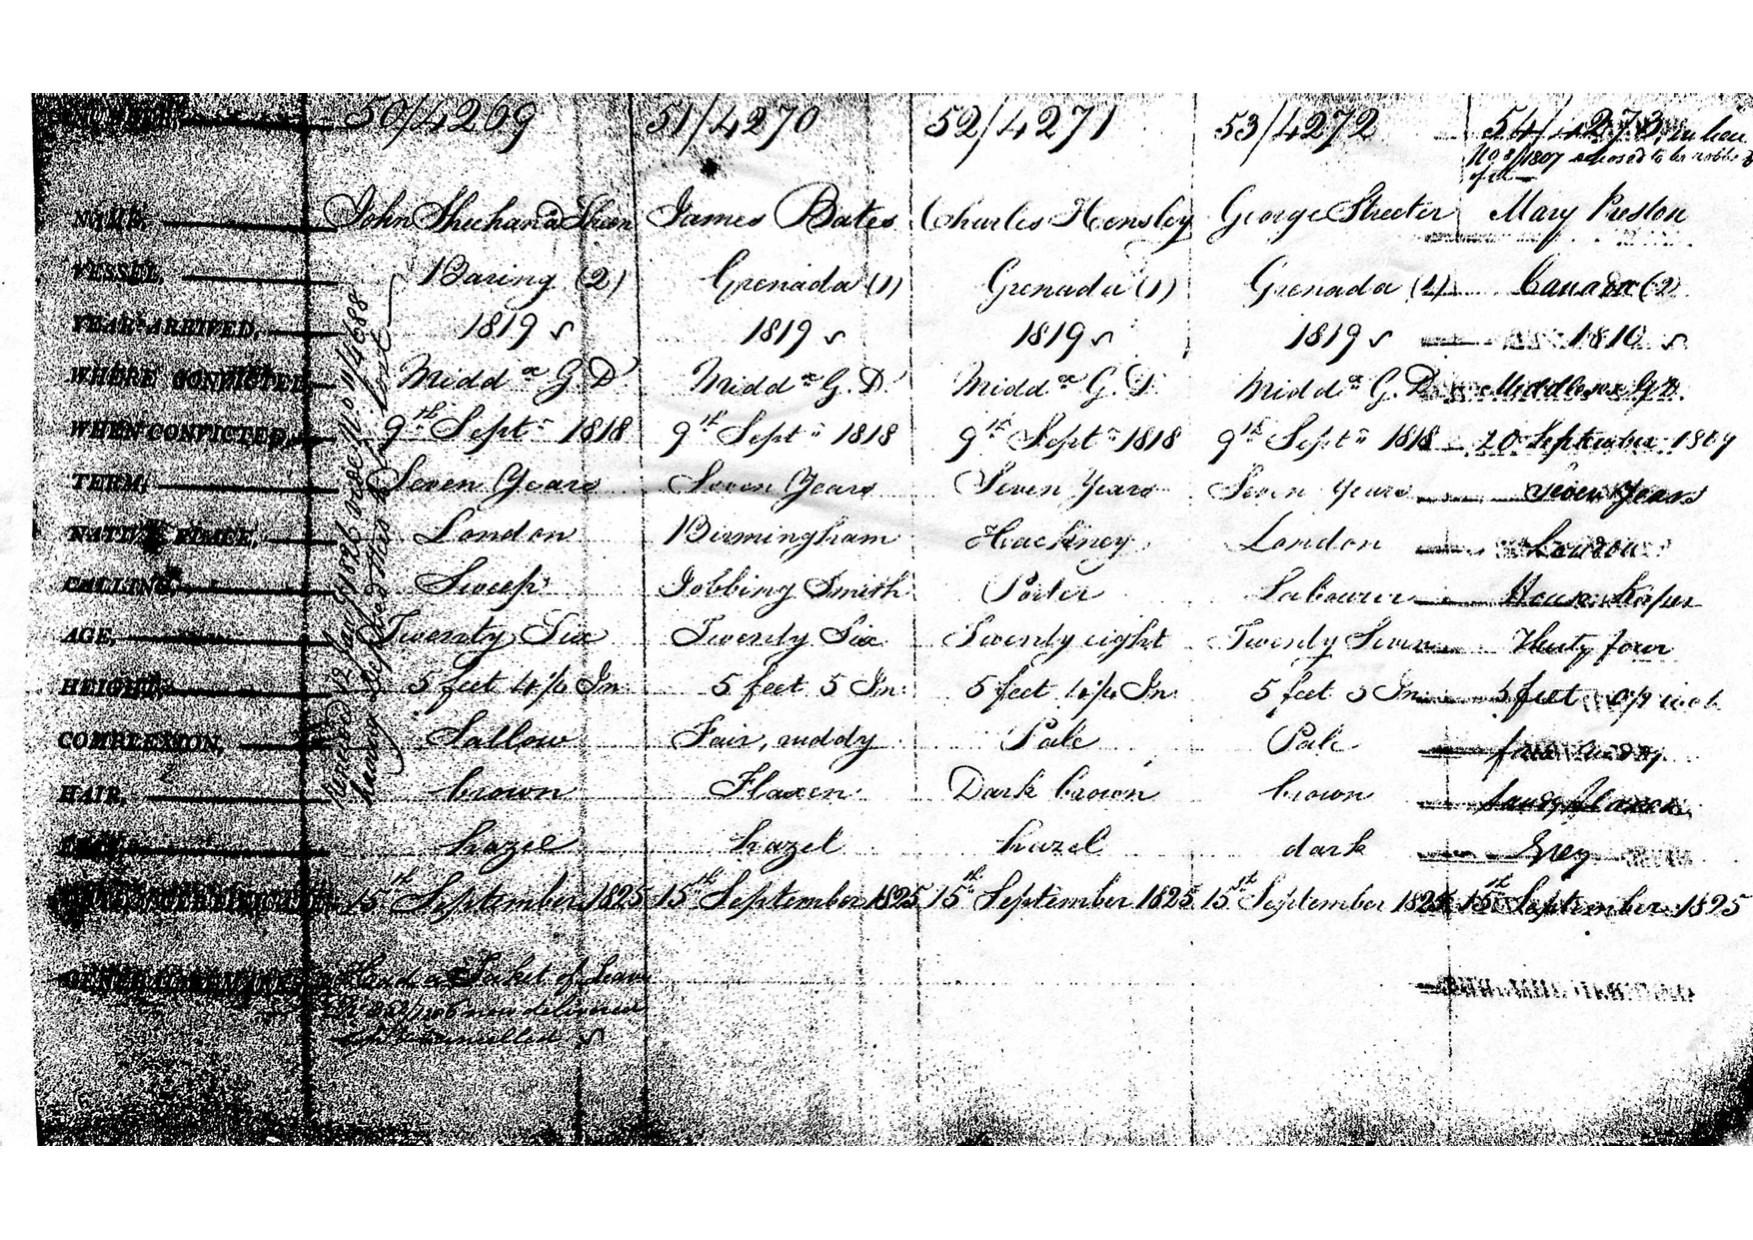 NUMBER, 50/4269 51/4270 52/4271 53/4272 54/4273, in lieu
No 8/1807 to be robbed
of it
NAME, John Sheehan a Shean James Bates Charles Hensley George Streeter Mary Preston
VESSEL, Baring (2) Grenada (1) Grenada (1) Grenada (1) Canada (2)
YEAR ARRIVED, 1819 1819 1819 1819 1810
WHERE CONVICTED, Middx G. D. Middx G. D. Middx G. D. Middx G. D. Middlesex G. D.
WHEN CONVICTED, 9th Septr 1818 9th Septr 1818 9th Septr 1818 9th Septr 1818 20 September 1809
TERM, Seven Years Seven Years Seven Years Seven Years Seven Years
NATIVE PLACE, London Birmingham Hackney London London
CALLING, Sweep Jobbing Smith Porter Labourer House Keeper
AGE, Twenty Six Twenty Six Twenty eight Twenty Seven Thirty four
HEIGHT, 5 feet 4½ In 5 feet 5 In 5 feet 4½ In 5 feet 5 In 5 feet 0½ inch
COMPLEXION, Sallow Fair, ruddy Pale Pale fair ruddy
HAIR, brown Flaxen Dark brown brown Sandy flaxen
EYES, hazel hazel hazel dark Grey
15th September 1825 15th September 1825 15th September 1825 15th September 1825 15th September 1825
GENERAL REMARKS, Had a Ticket of Leave
now delivered
up & cancelled
Renewed 12 July 1826 vide No 11/4688
having reported this lost